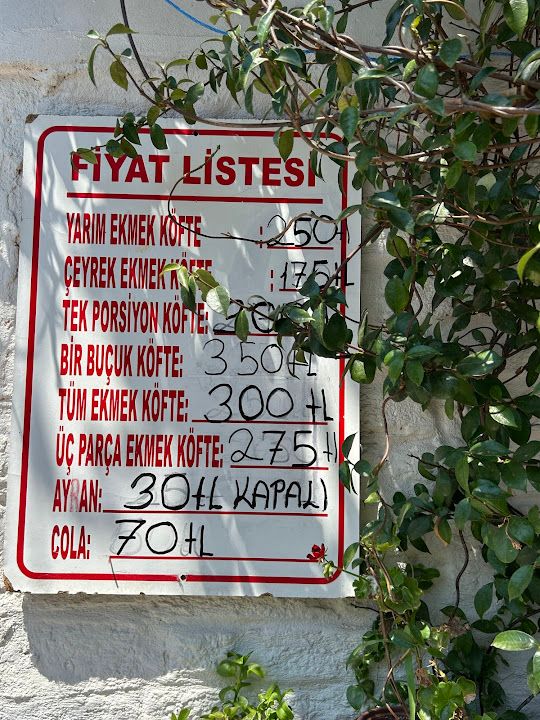 FİYAT LİSTESİ
YARIM EKMEK KÖFTE : 250tl
ÇEYREK EKMEK KÖFTE : 175tL
TEK PORSİYON KÖFTE:
BİR BUÇUK KÖFTE: 350tL
TÜM EKMEK KÖFTE: 300 tL
ÜÇ PARÇA EKMEK KÖFTE: 275tL
AYRAN: 30tL KAPALI
COLA: 70tL